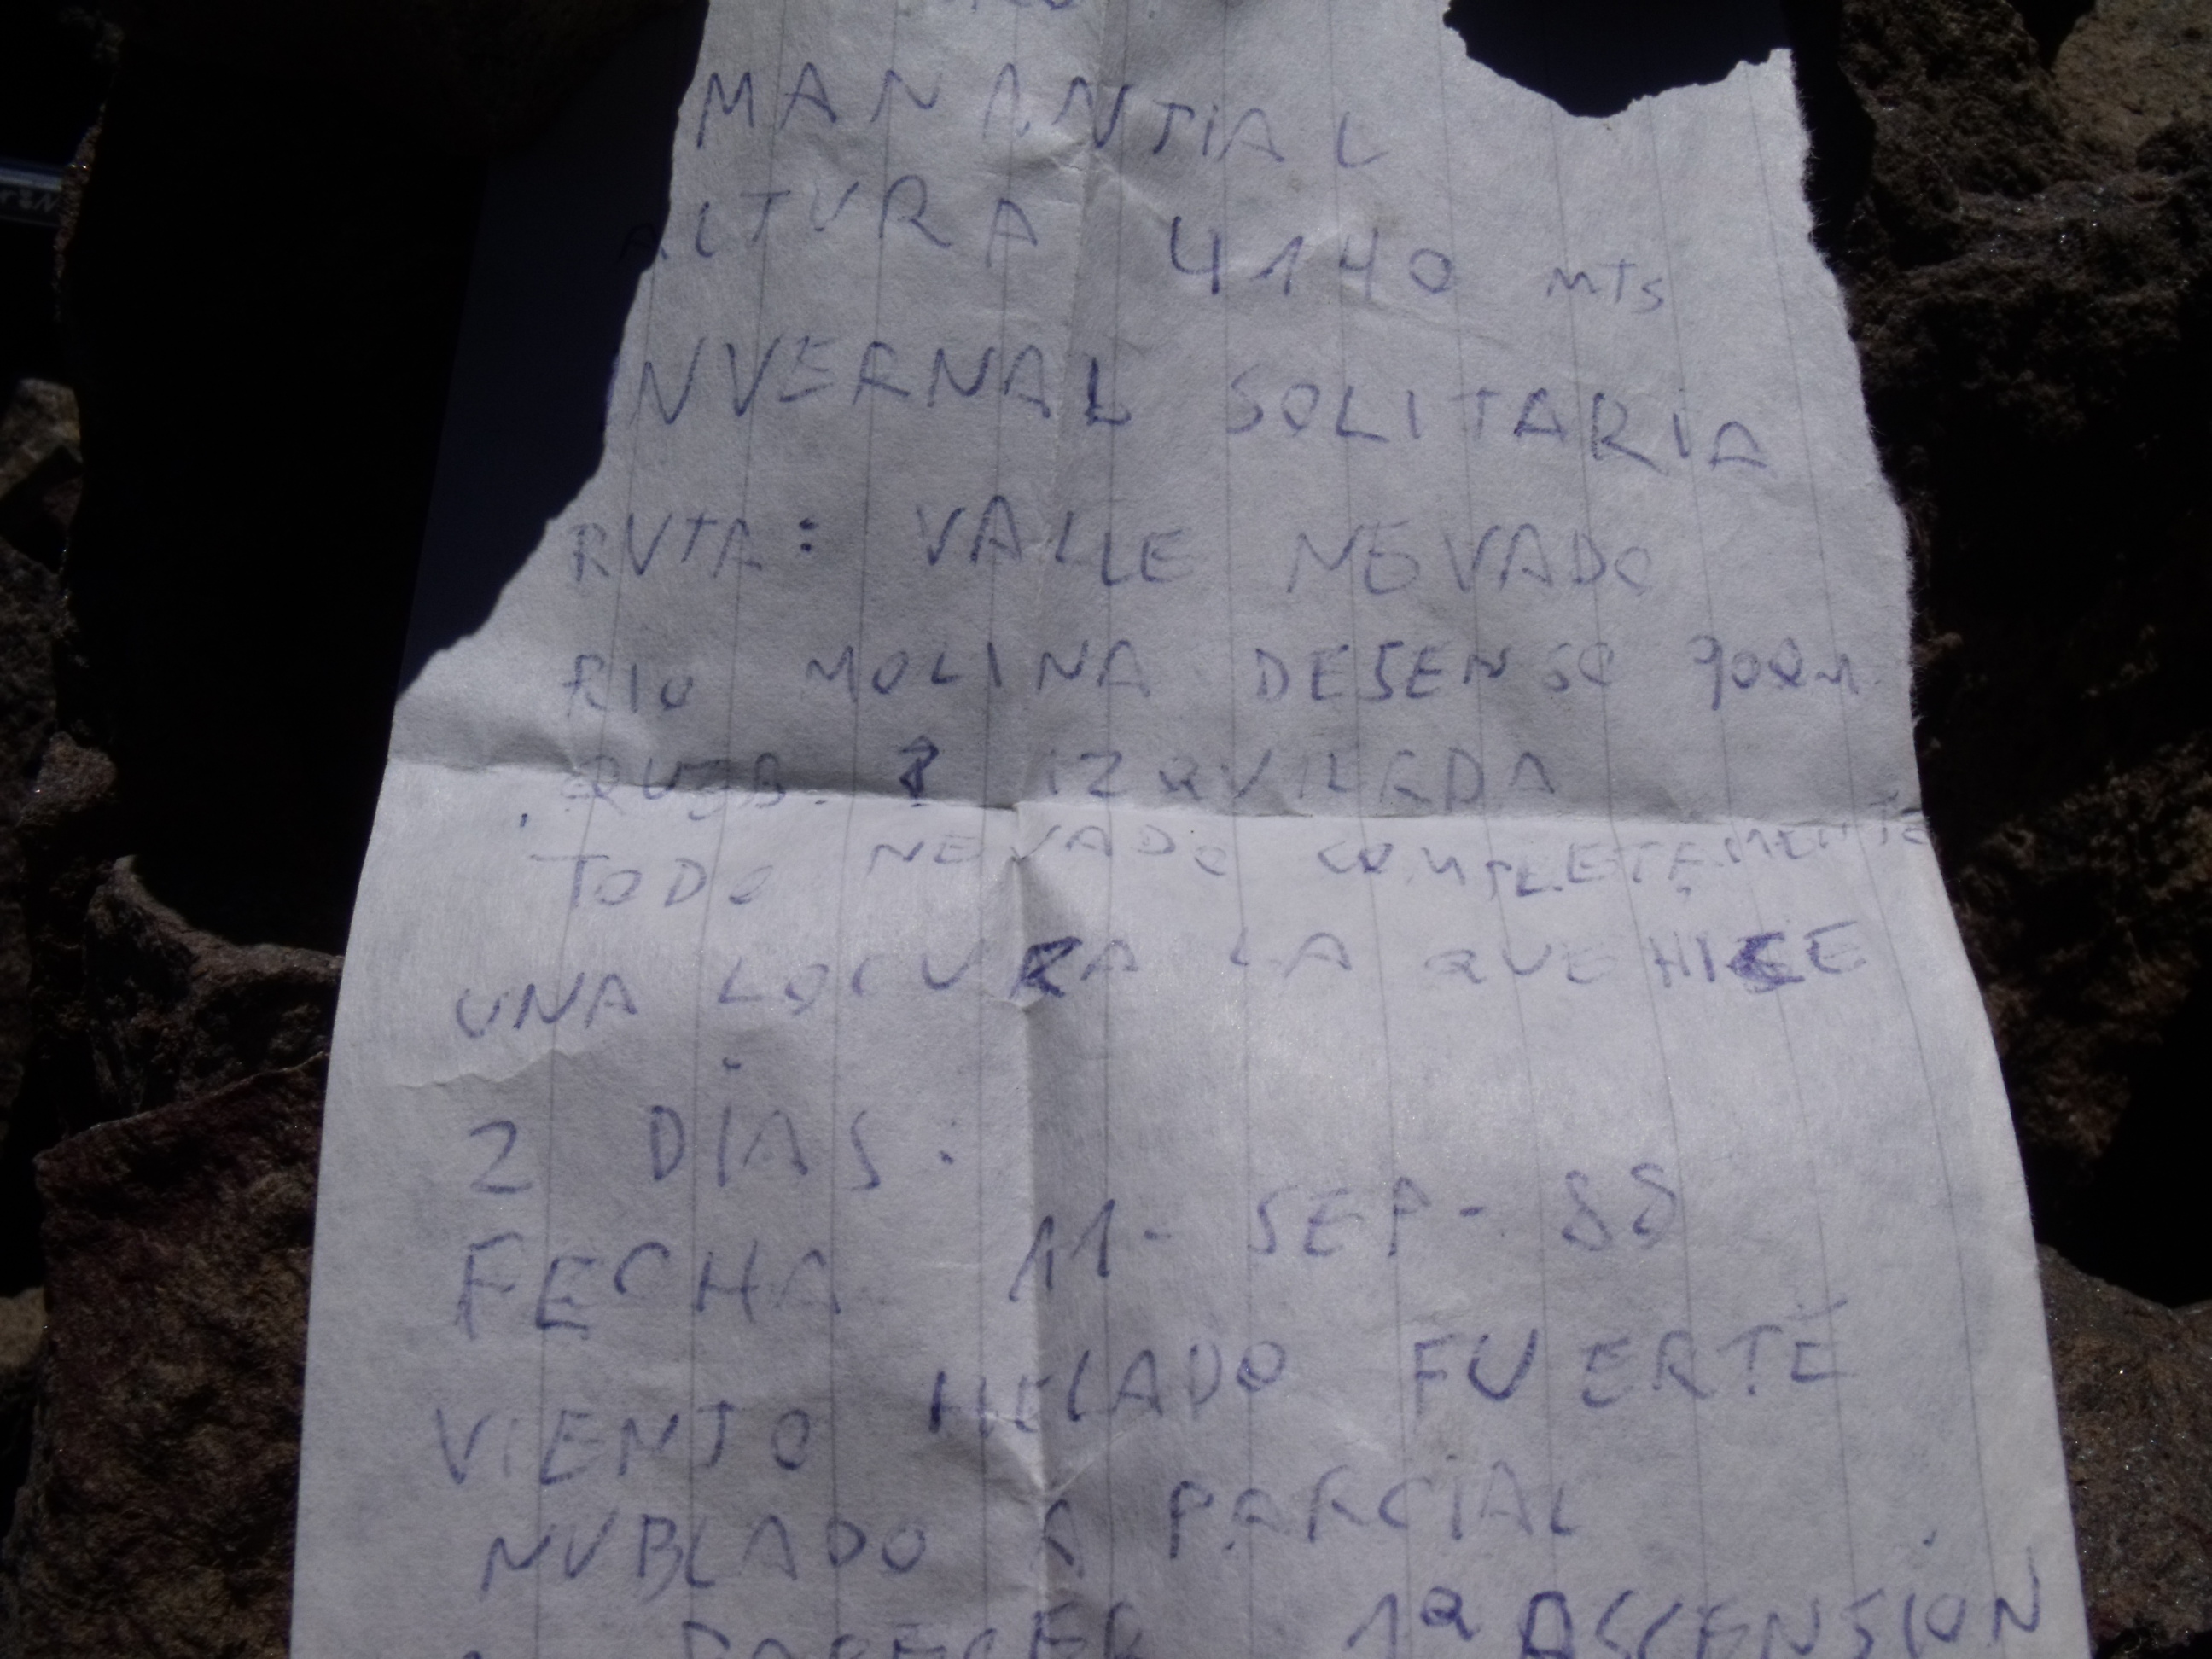 MANANTIAL
ALTURA 4140 mts
INVERNAL SOLITARIA
RUTA: VALLE NEVADO
RIO MOLINA DESENSO 900m
QUEB. IZQUIERDA
TODO NEVADO COMPLETAMENTE
UNA LOCURA LA QUE HICE
2 DÍAS.
FECHA 11-SEP-88
VIENTO HELADO FUERTE
NUBLADO A PARCIAL
PARECER 1ª ASCENSIÓN